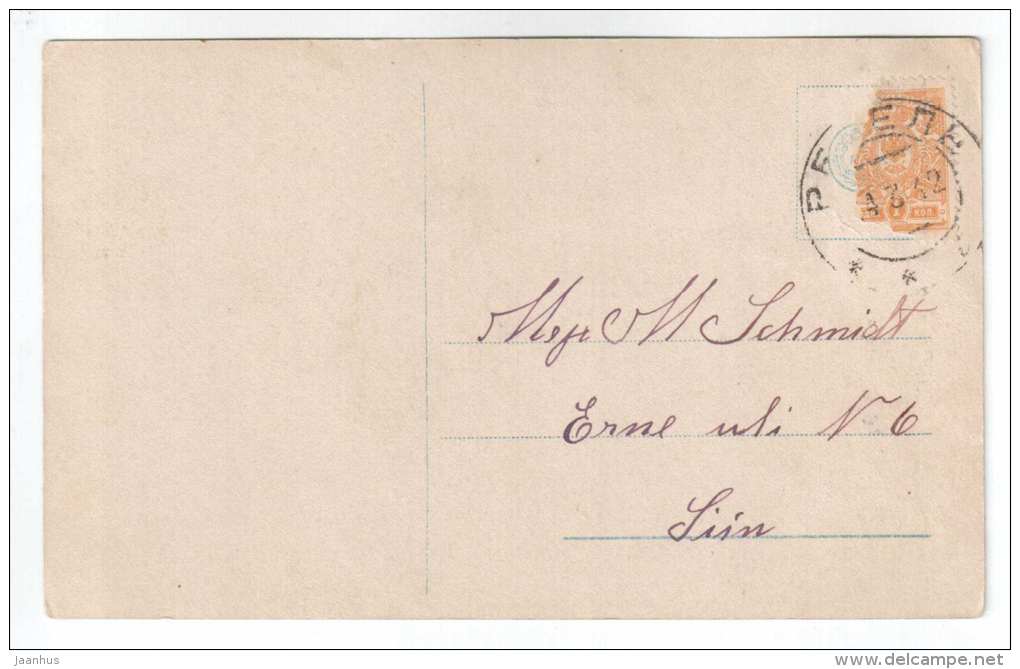 РЕВЕЛЬ
4 3 12
1 КОП.
M. Schmidt
Erne uli N 6
Siin
jaanhus
delcampe.net